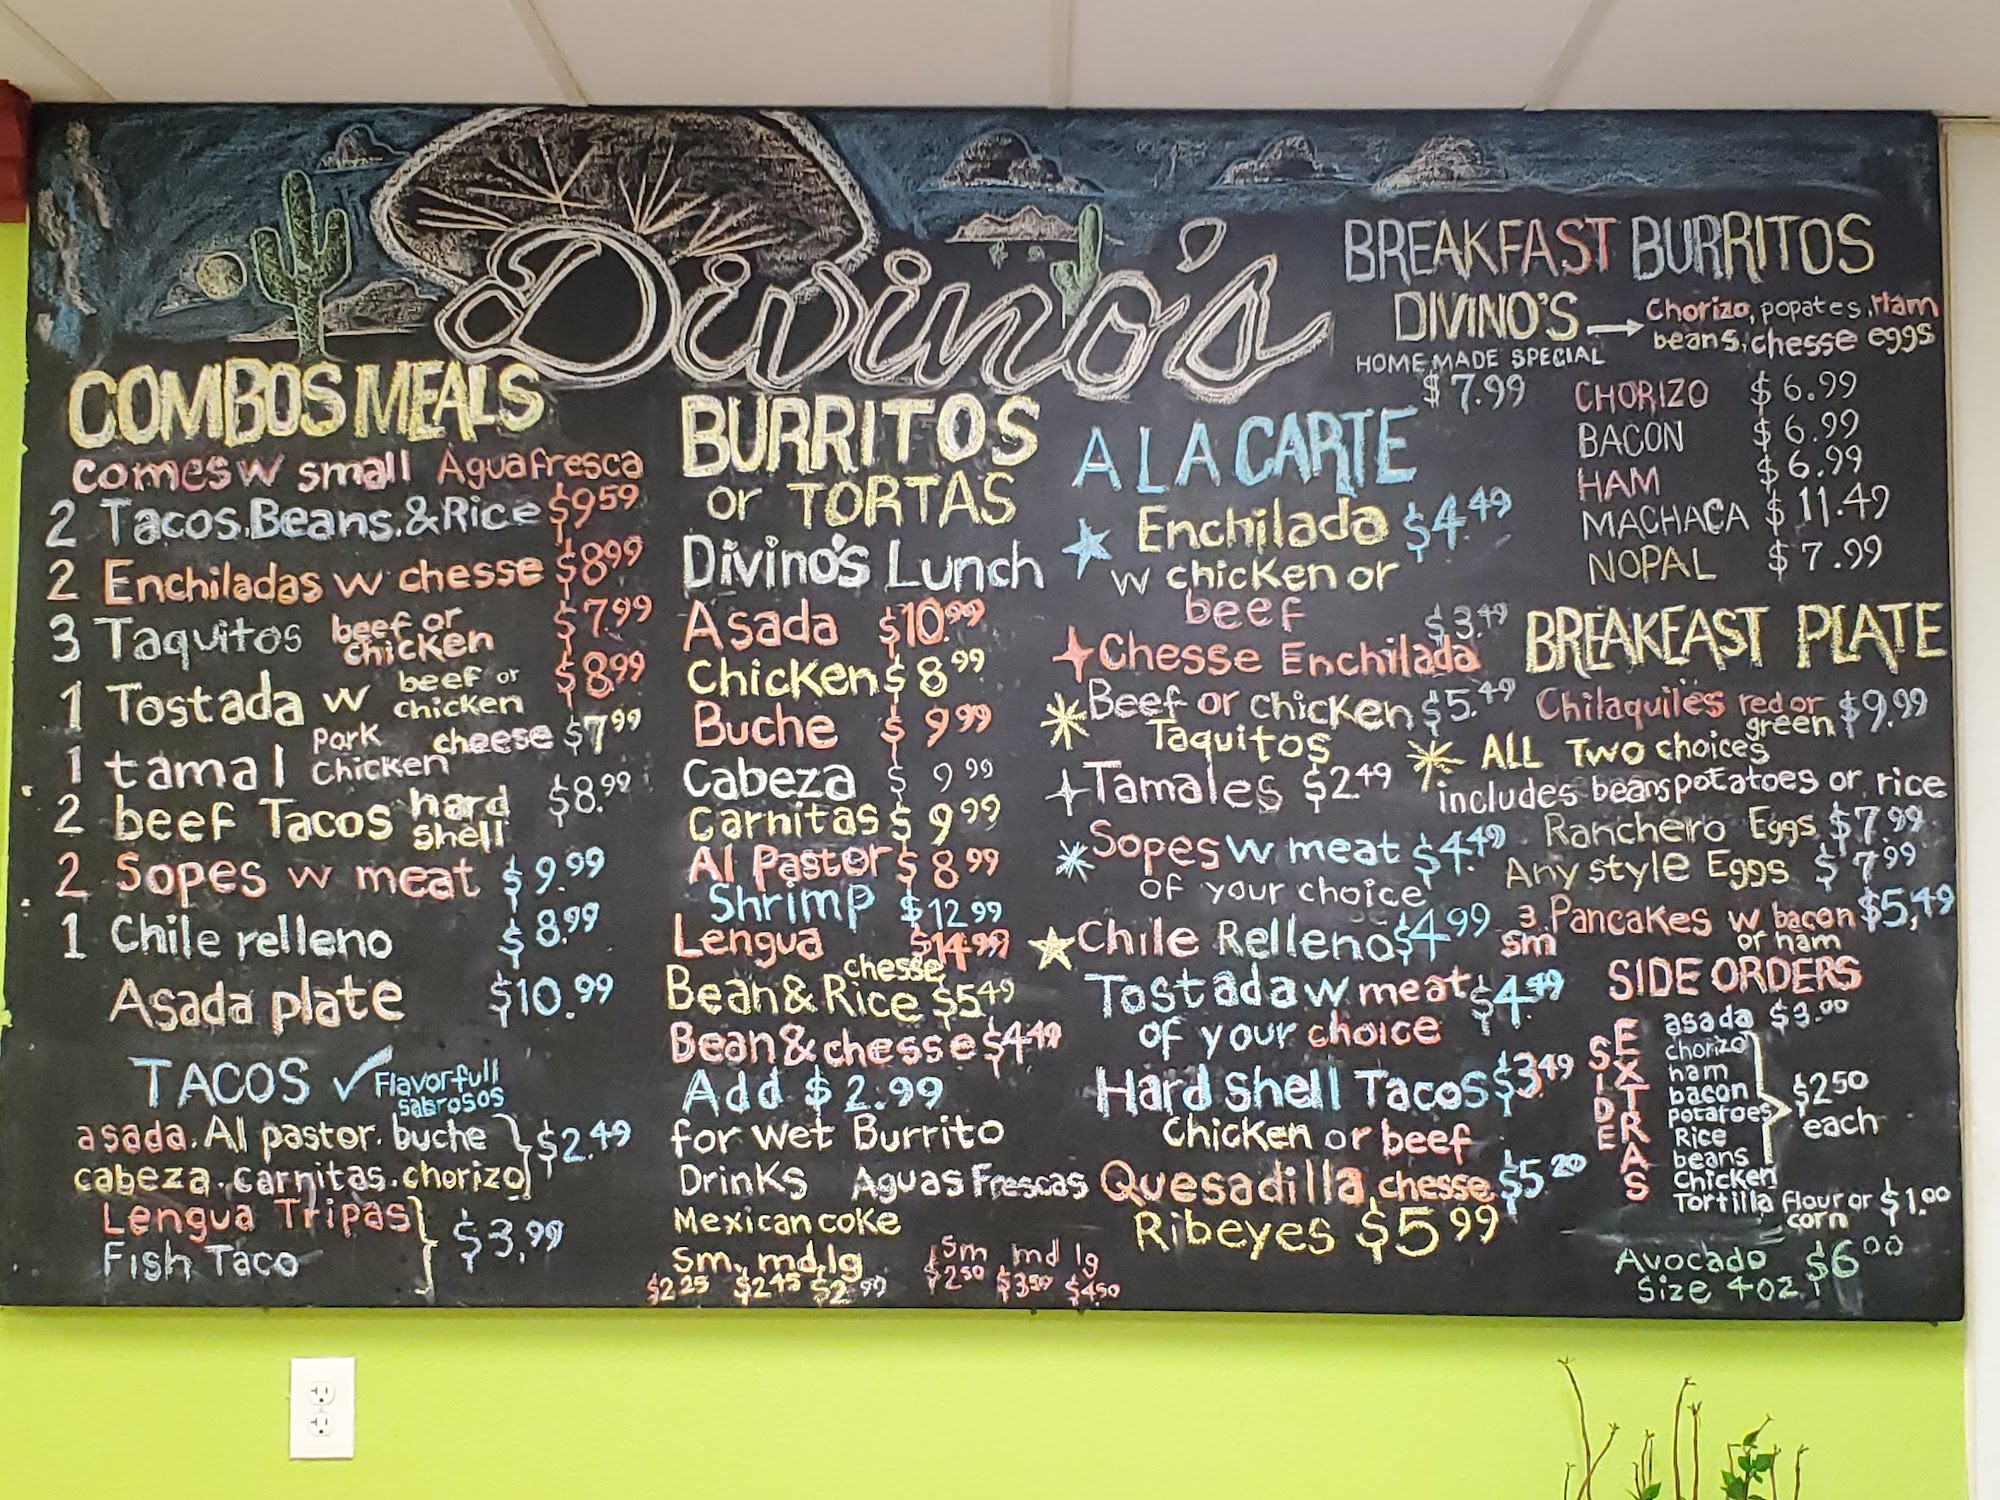 Divino's
COMBOS MEALS
comes w small Agua fresca
2 Tacos, Beans, & Rice $9.59
2 Enchiladas w chesse $8.99
3 Taquitos beef or chicken $7.99
1 Tostada w beef or chicken $8.99
1 tamal pork chicken cheese $7.99
2 beef Tacos hard shell $8.99
2 Sopes w meat $9.99
1 Chile relleno $8.99
Asada plate $10.99
TACOS ✓ Flavorfull
sabrosos
asada. Al pastor. buche
cabeza. carnitas. chorizo } $2.49
Lengua Tripas
Fish Taco } $3.99
BURRITOS
or TORTAS
Divino's Lunch
Asada $10.99
Chicken $8.99
Buche $9.99
Cabeza $9.99
Carnitas $9.99
Al Pastor $8.99
Shrimp $12.99
Lengua $14.99
chesse
Bean & Rice $5.49
Bean & chesse $4.49
Add $2.99
for wet Burrito
Drinks Aguas Frescas
Mexican coke
sm, md, lg
$2.25 $2.45 $2.99
sm md lg
$2.50 $3.50 $4.50
A LA CARTE
Enchilada $4.49
w chicken or
beef
$3.49
Chesse Enchilada
Beef or chicken $5.49
Taquitos
Tamales $2.49
Sopes w meat $4.49
of your choice
Chile Relleno $4.99
Tostada w meat $4.49
of your choice
Hard Shell Tacos $3.49
Chicken or beef
Quesadilla, chesse $5.20
Ribeyes $5.99
BREAKFAST BURRITOS
DIVINO'S → Chorizo, popates, Ham
beans, chesse eggs
HOME MADE SPECIAL
$7.99
CHORIZO $6.99
BACON $6.99
HAM $6.99
MACHACA $11.49
NOPAL $7.99
BREAKFAST PLATE
Chilaquiles red or green $9.99
ALL Two choices
includes beans potatoes or rice
Ranchero Eggs $7.99
Any style Eggs $7.99
3 sm Pancakes w bacon $5,49
or ham
SIDE ORDERS
SIDE EXTRAS
asada $3.00
chorizo
ham
bacon
potatoes
Rice
beans
chicken
$2.50
each
Tortilla flour or $1.00
corn
Avocado $6.00
Size 4oz.